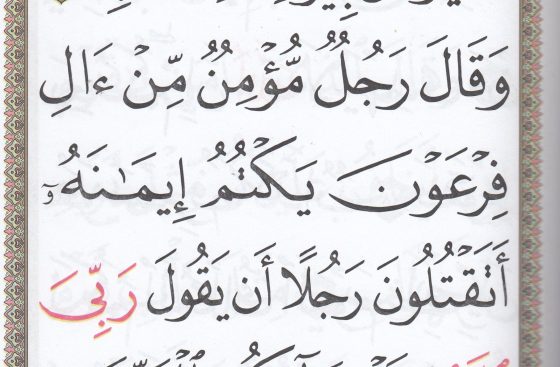 وَقَالَ رَجُلٌ مُّؤْمِنٌ مِّنْ ءَالِ
فِرْعَوْنَ يَكْتُمُ إِيمَـٰنَهُۥٓ
أَتَقْتُلُونَ رَجُلًا أَن يَقُولَ رَبِّيَ